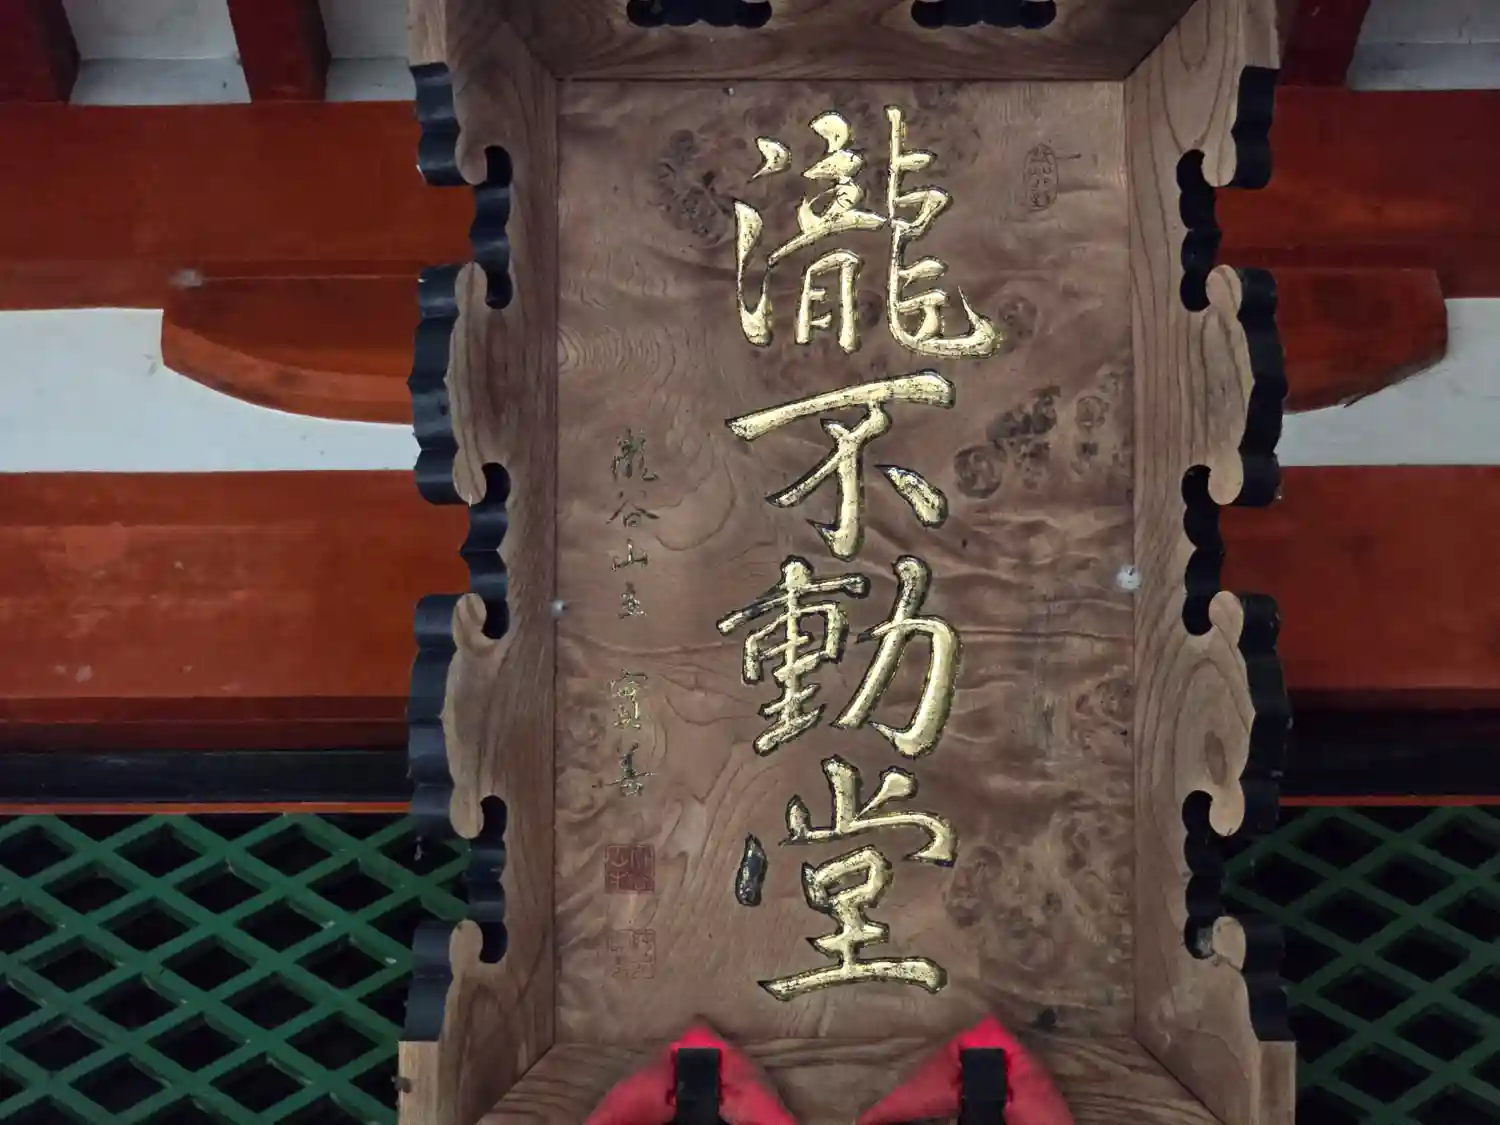 瀧不動堂
瀧谷山主 寳善